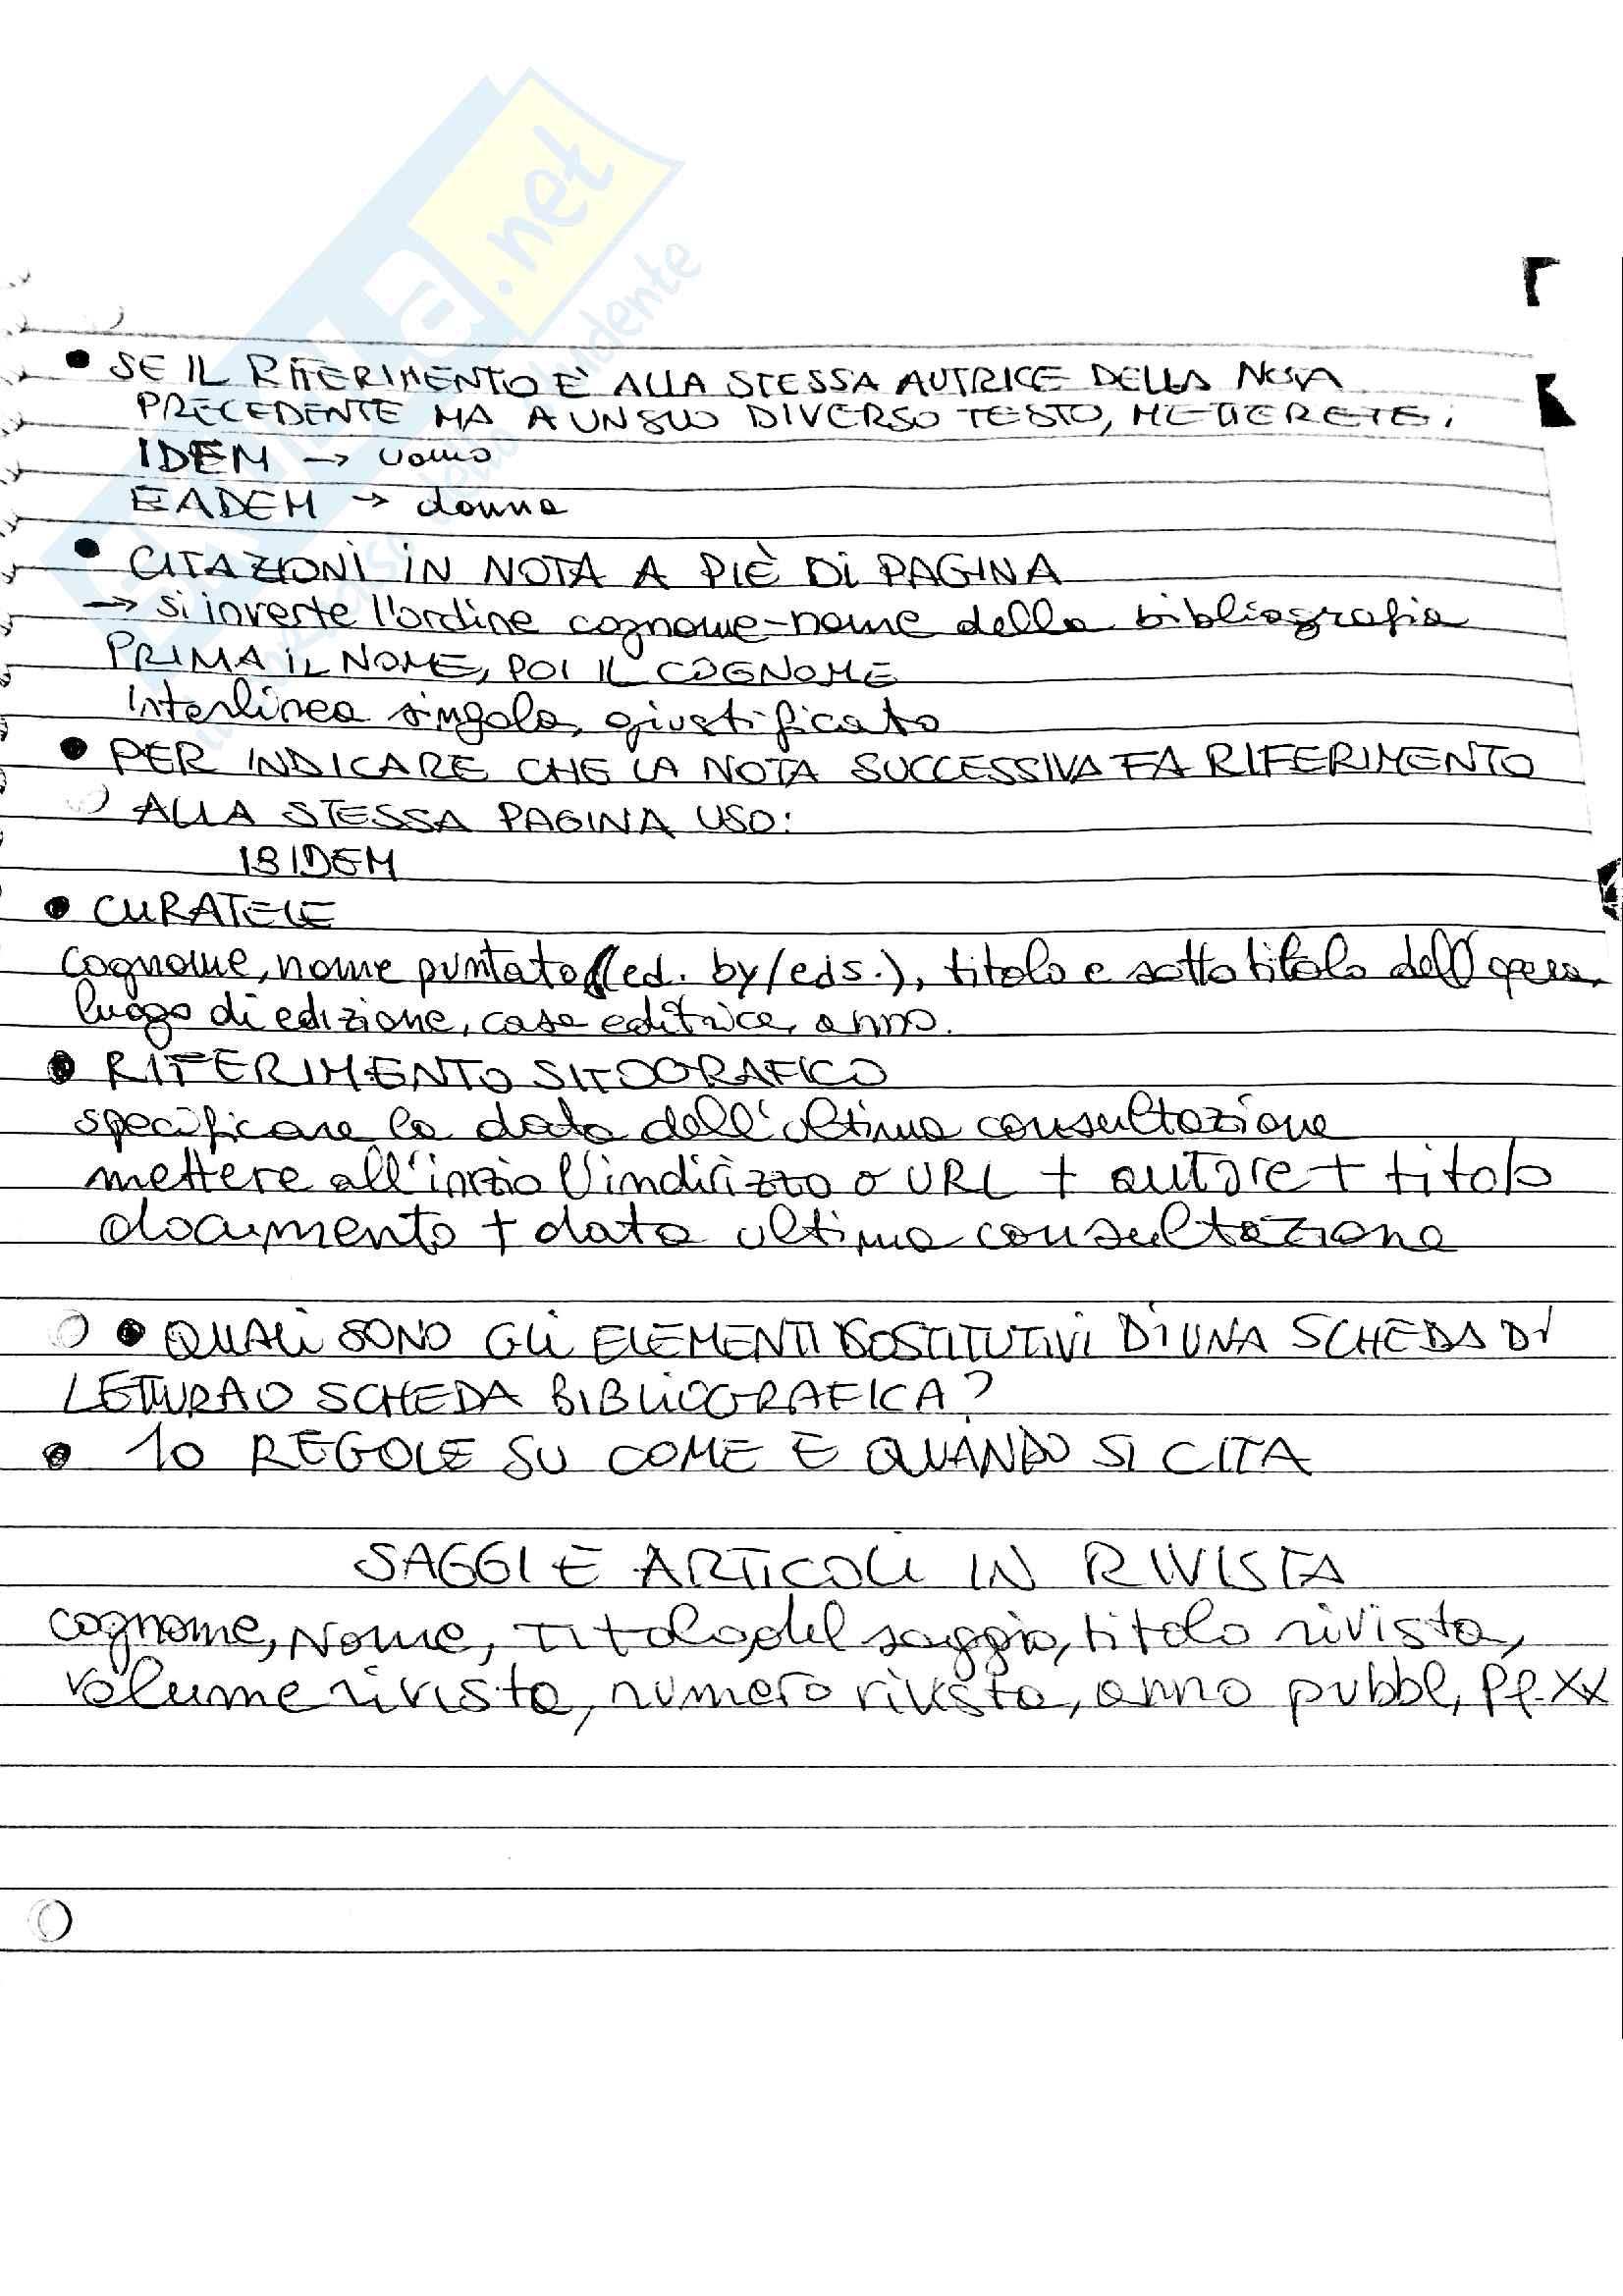 .net
• SE IL RIFERIMENTO È ALLA STESSA AUTRICE DELLA NOTA
PRECEDENTE MA A UN SUO DIVERSO TESTO, METTERETE:
IDEM → uomo
EADEM → donna
• CITAZIONI IN NOTA A PIÈ DI PAGINA
→ si inverte l'ordine cognome-nome della bibliografia
PRIMA IL NOME, POI IL COGNOME
Interlinea singola, giustificato
• PER INDICARE CHE LA NOTA SUCCESSIVA FA RIFERIMENTO
ALLA STESSA PAGINA USO:
IBIDEM
• CURATELE
cognome, nome puntato (ed. by/eds.), titolo e sottotitolo dell'opera,
luogo di edizione, casa editrice, anno.
• RIFERIMENTO SITOGRAFICO
specificare la data dell'ultima consultazione
mettere all'inizio l'indirizzo o URL + autore + titolo
documento + data ultima consultazione
• QUALI SONO GLI ELEMENTI SOSTITUTIVI DI UNA SCHEDA DI
LETTURA O SCHEDA BIBLIOGRAFICA?
• 10 REGOLE SU COME E QUANDO SI CITA
SAGGI E ARTICOLI IN RIVISTA
cognome, Nome, Titolo del saggio, titolo rivista,
volume rivista, numero rivista, anno pubbl, pp. XX